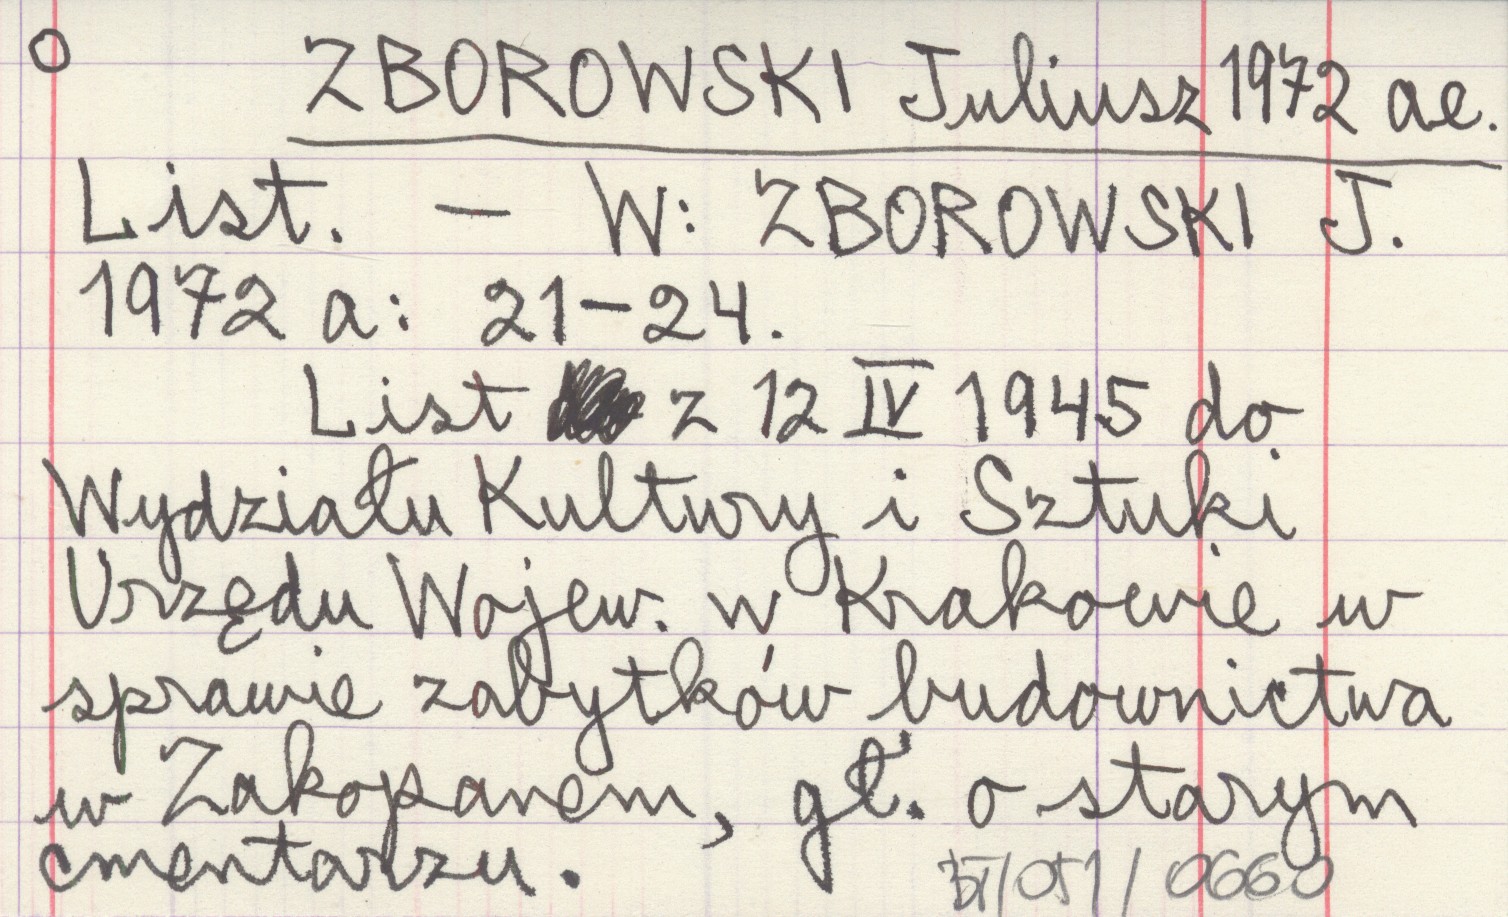 O ZBOROWSKI Juliusz 1972 ae.
List. — W: ZBOROWSKI J.
1972 a: 21-24.
List z 12 IV 1945 do
Wydziału Kultury i Sztuki
Urzędu Wojew. w Krakowie w
sprawie zabytków budownictwa
w Zakopanem, gł. o starym
cmentarzu.
/051/0660